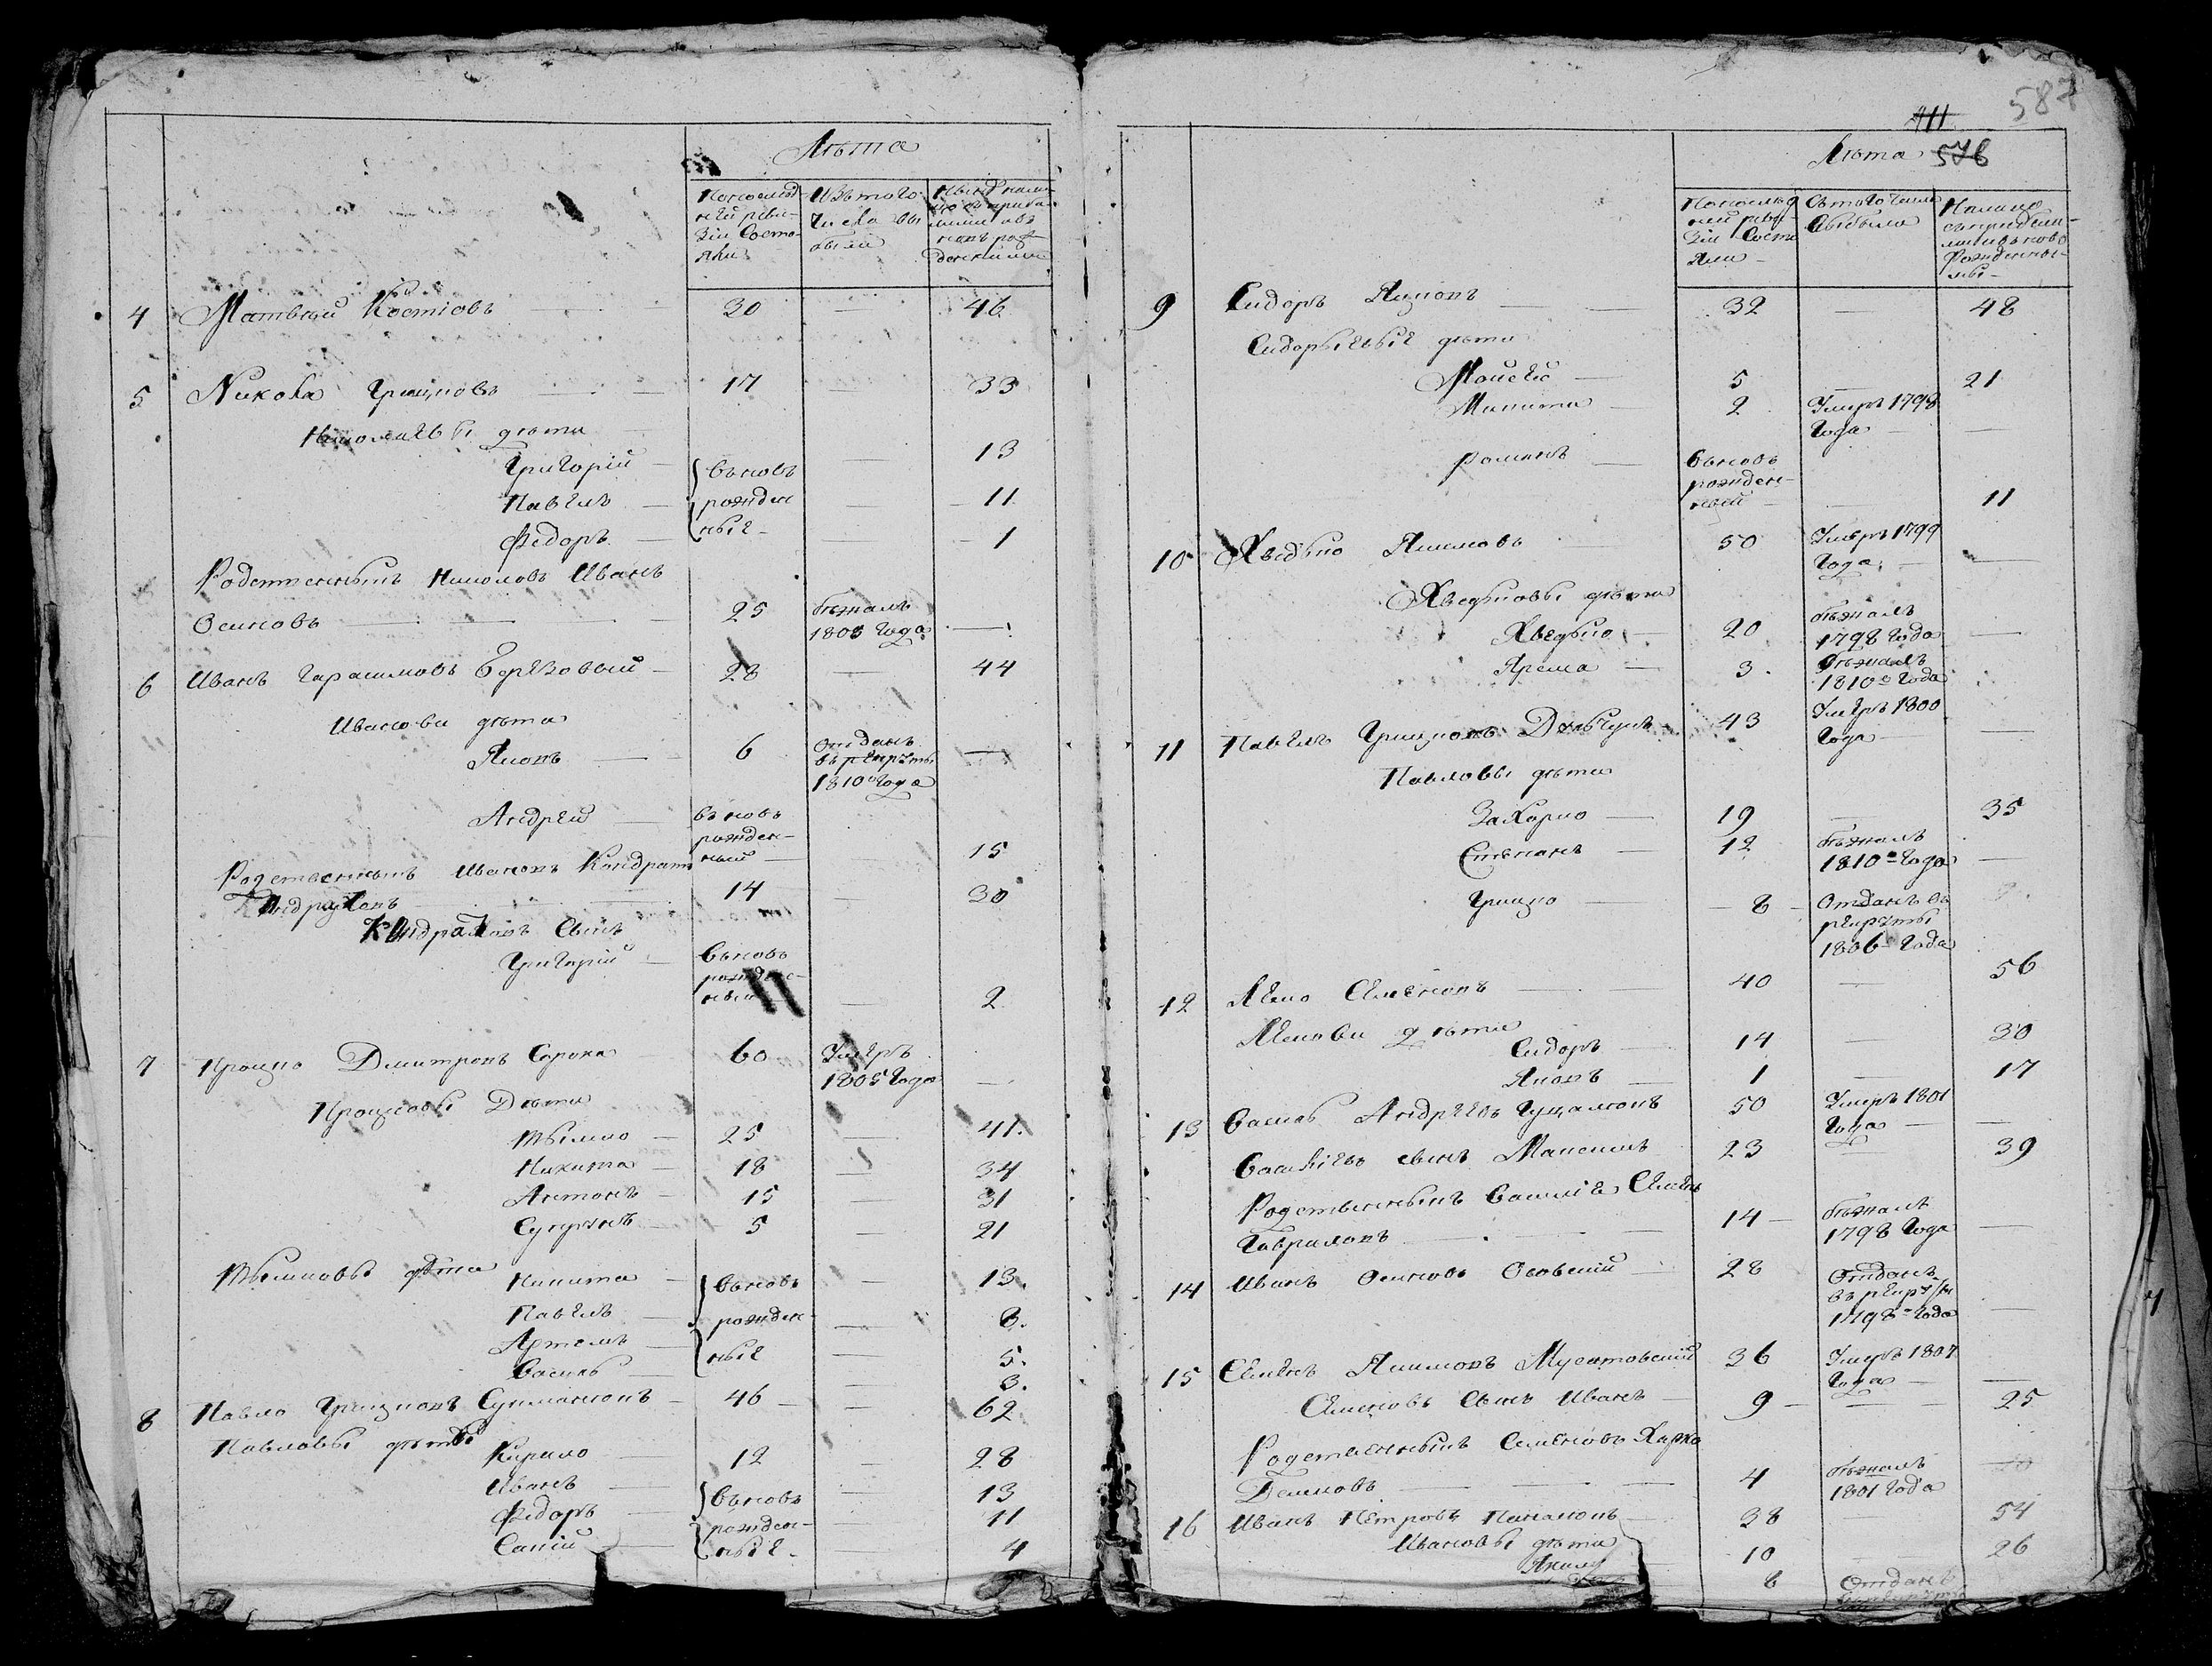 Лѣта
По последней ревизіи состояли
Изъ того числа выбыли
4 Матвѣй Костювъ 30 — 46
5 Никола Грицковъ 17 — 33
Николаевы дѣти
Григорій вновь — 13
Павелъ рожден — 11
Федоръ ные — 1
Родственникъ Николовъ Иванъ
Осиповъ 25 бѣжалъ 1805 года —
6 Иванъ Гарасимовъ Березовый 28 — 44
Иванови дѣти
Яковъ 6 Отданъ въ рекруты 1810 года —
Андрей вновь рожденный 15
Родственникъ Ивановъ Кондратъ
14 — 30
сынъ
Григорій вновь — 2
7 Процко Дмитровъ Сорока 60 Умеръ 1805 года —
Процковы Дѣти
Тымко 25 — 41
Никита 18 34
Антонъ 15 — 31
Супрунъ 5 — 21
Тымковы дѣти Никита вновь — 13
Павелъ рожден — 8
Артемъ ные — 5
Василь — 3
8 Павло Грицковъ 46 — 62
Павловы дѣти
Кирило 12 — 28
Иванъ вновь — 13
Федоръ рожден 11
Сапій ные 4
587
411
576
Лѣта
По последней ревизіи состояли
Съ того числа выбыло
9 Сидоръ Яцковъ 32 — 48
Сидорыевые дѣти
Мойсей 5 — 21
Микита 2 Умеръ 1798 года —
Романъ вновь рожденный — 11
10 Хведько Якимовъ 50 Умеръ 1799 года —
Хведковы дѣти
Хведько 20 бѣжалъ 1798 года —
Ярема 3 бѣжалъ 1810 года
11 Павелъ Грицковъ 43 Умеръ 1800 года —
Павловы дѣти
Захарко 19 — 35
Степанъ 12 бѣжалъ 1810 года —
Грицко 8 Отданъ въ рекруты 1806 года
12 Лесько Семеновъ 40 — 56
дѣти
Сидоръ 14 — 30
Яковъ 1 — 17
13 Василь Андреевъ 50 Умеръ 1801 года —
Васильевъ сынъ Максимъ 23 39
Родственникъ Василіевъ Семенъ
Гавриловъ 14 бѣжалъ 1798 года —
14 Иванъ Осиповъ 28 Отданъ въ рекруты 1798 года —
15 Семенъ Якимовъ Мусатовскій 36 Умеръ 1807 года —
Семеновъ сынъ Иванъ 9 — 25
Родственникъ Семеновъ Харко
Демковъ 4 бѣжалъ 1801 года
16 Иванъ Петровъ 38 54
Ивановы дѣти
10 — 26
Отданъ